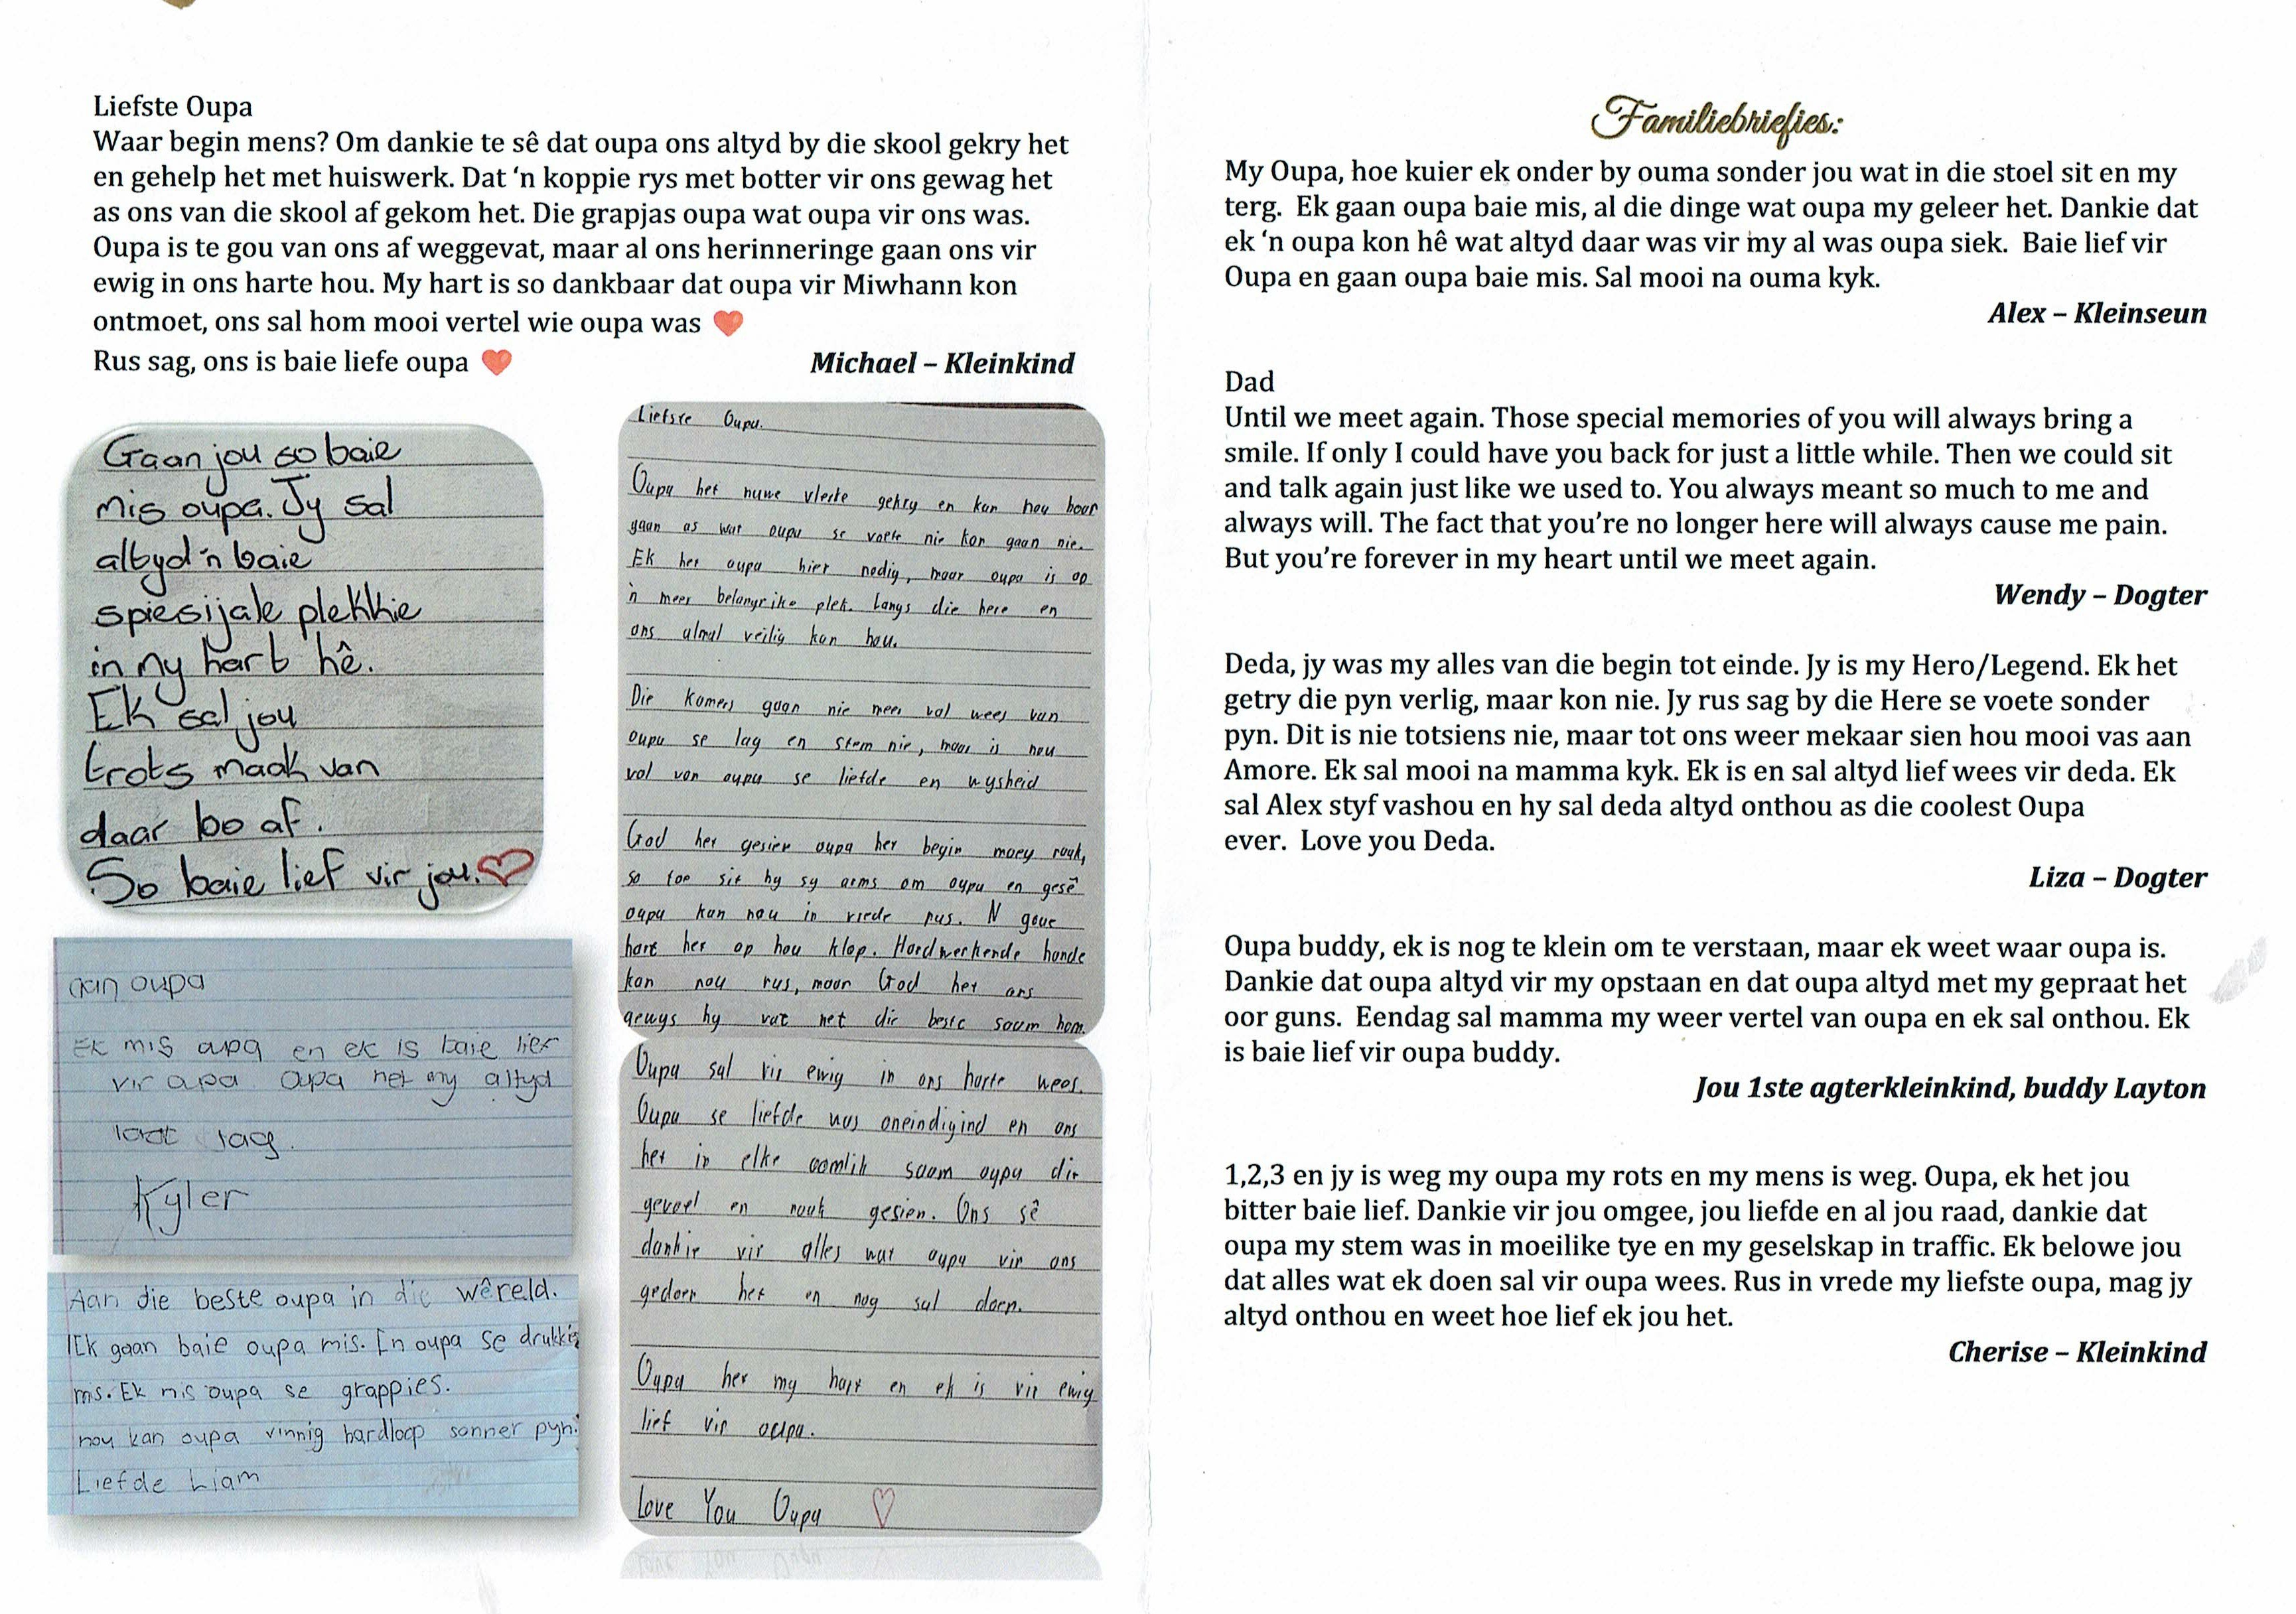 Liefste Oupa
Waar begin mens? Om dankie te sê dat oupa ons altyd by die skool gekry het
en gehelp het met huiswerk. Dat ‘n koppie rys met botter vir ons gewag het
as ons van die skool af gekom het. Die grapjas oupa wat oupa vir ons was.
Oupa is te gou van ons af weggevat, maar al ons herinneringe gaan ons vir
ewig in ons harte hou. My hart is so dankbaar dat oupa vir Miwhann kon
ontmoet, ons sal hom mooi vertel wie oupa was ❤️
Rus sag, ons is baie liefe oupa ❤️
Michael – Kleinkind
Gaan jou so baie
mis oupa. Jy sal
altyd 'n baie
spiesijale plekkie
in my hart hê.
Ek sal jou
trots maak van
daar bo af.
So baie lief vir jou.
aan oupa
Ek mis oupa en ek is baie lief
vir oupa. Oupa het my altyd
laat lag.
Kyler
Aan die beste oupa in die wêreld.
Ek gaan baie oupa mis. En oupa se drukkie
mis. Ek mis oupa se grappies.
nou kan oupa vinnig hardloop sonner pyn.
Liefde Liam
Liefste Oupa.
Oupa het nuwe vlerke gekry en kan nou hoor
gaan as wat oupa se voete nie kon gaan nie.
Ek het oupa hier nodig, maar oupa is op
'n meer belangrike plek. Langs die here en
ons almal veilig kan hou.
Die kamers gaan nie meer vol wees van
oupa se lag en stem nie, maar is nou
vol van oupa se liefde en wysheid
God het gesien oupa het begin moeg raak,
so toe sit hy sy arms om oupa en gesê
oupa kan nou in vrede rus. N goue
hart het op hou klop. Hardwerkende hande
kan nou rus, maar God het ons
gewys hy vat net die beste saam hom.
Oupa sal vir ewig in ons harte wees.
Oupa se liefde was oneindigind en ons
het in elke oomlik saam oupa dit
gevoel en raak gesien. Ons sê
dankie vir alles wat oupa vir ons
gedoen het en nog sal doen.
Oupa het my hart en ek is vir ewig
lief vir oupa.
Love You Oupa
Familiebriefies:
My Oupa, hoe kuier ek onder by ouma sonder jou wat in die stoel sit en my
terg. Ek gaan oupa baie mis, al die dinge wat oupa my geleer het. Dankie dat
ek ‘n oupa kon hê wat altyd daar was vir my al was oupa siek. Baie lief vir
Oupa en gaan oupa baie mis. Sal mooi na ouma kyk.
Alex – Kleinseun
Dad
Until we meet again. Those special memories of you will always bring a
smile. If only I could have you back for just a little while. Then we could sit
and talk again just like we used to. You always meant so much to me and
always will. The fact that you’re no longer here will always cause me pain.
But you’re forever in my heart until we meet again.
Wendy – Dogter
Deda, jy was my alles van die begin tot einde. Jy is my Hero/Legend. Ek het
getry die pyn verlig, maar kon nie. Jy rus sag by die Here se voete sonder
pyn. Dit is nie totsiens nie, maar tot ons weer mekaar sien hou mooi vas aan
Amore. Ek sal mooi na mamma kyk. Ek is en sal altyd lief wees vir deda. Ek
sal Alex styf vashou en hy sal deda altyd onthou as die coolest Oupa
ever. Love you Deda.
Liza – Dogter
Oupa buddy, ek is nog te klein om te verstaan, maar ek weet waar oupa is.
Dankie dat oupa altyd vir my opstaan en dat oupa altyd met my gepraat het
oor guns. Eendag sal mamma my weer vertel van oupa en ek sal onthou. Ek
is baie lief vir oupa buddy.
Jou 1ste agterkleinkind, buddy Layton
1,2,3 en jy is weg my oupa my rots en my mens is weg. Oupa, ek het jou
bitter baie lief. Dankie vir jou omgee, jou liefde en al jou raad, dankie dat
oupa my stem was in moeilike tye en my geselskap in traffic. Ek belowe jou
dat alles wat ek doen sal vir oupa wees. Rus in vrede my liefste oupa, mag jy
altyd onthou en weet hoe lief ek jou het.
Cherise – Kleinkind